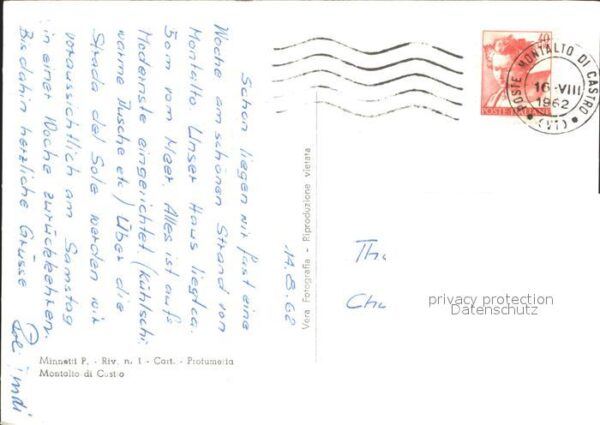 Schon liegen wir fast eine
Woche am schönen Strand von
Montalto. Unser Haus liegt ca.
50m vom Meer. Alles ist aufs
Modernste eingerichtet (Kühlschr.
warme Dusche etc) Über die
Strada del Sole werden wir
voraussichtlich am Samstag
in einer Woche zurückkehren.
Bis dahin herzliche Grüsse
14.8.62
Vera Fotografia - Riproduzione vietata
Minnetti P. - Riv. n. 1 - Cart. - Profumeria
Montalto di Castro
POSTE ITALIANE
POSTE MONTALTO DI CASTRO
16-VIII
1962
(VT)
Th
Ch
privacy protection
Datenschutz